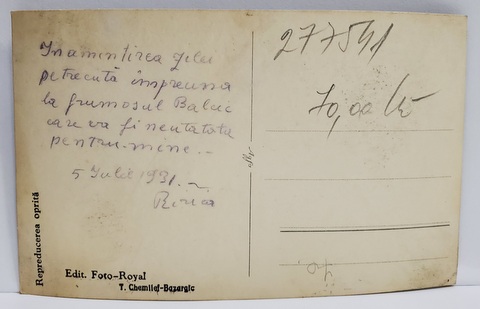 Inamintirea zilei
petrecută împreuna
la frumosul Balcic
care va fi neuitatata
pentru-mine.-
5 Iulie 1931.
277541
70,00
Reproducerea oprită
Edit. Foto-Royal
T. Chemilef-Bazargic